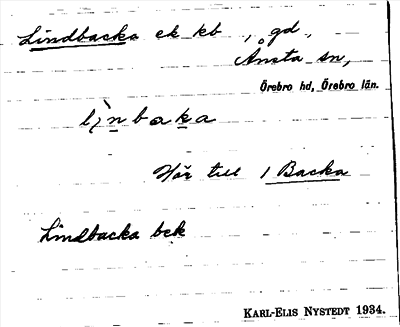 Lindbacka ek kb, gd,
Ånsta sn,
Örebro hd, Örebro län.
lìnbaka
Hör till 1 Backa
Lindbacka bek
KARL-ELIS NYSTEDT 1934.